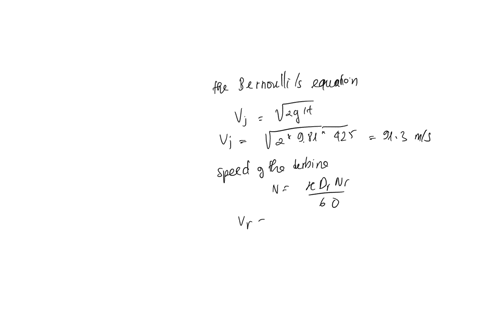 the Bernoulli's equation
Vj = √2gH
Vj = √2*9.81*425 = 91.3 m/s
speed of the turbine
N = πDrNr/60
Vr =